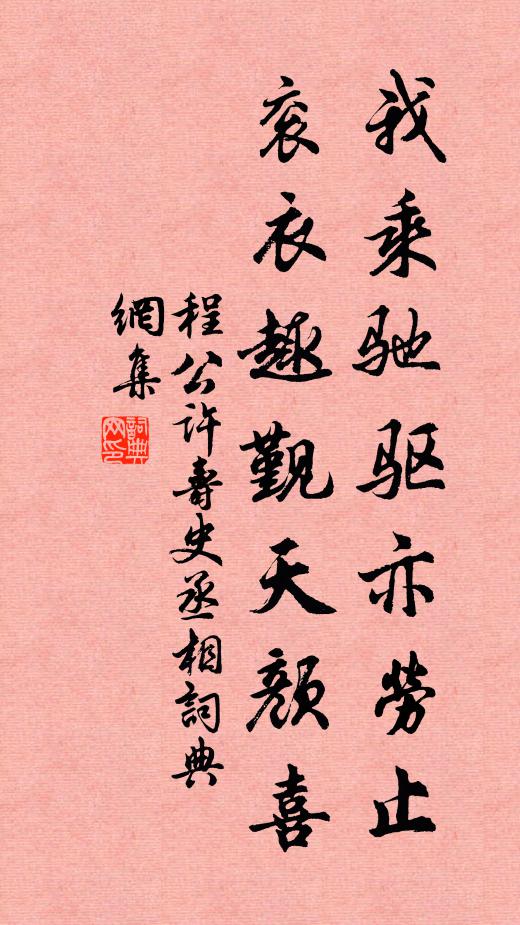 我乘驰驱亦勞止
衮衣趣觐天顔喜
程公许壽史丞相詞典
網集
詞典
网印